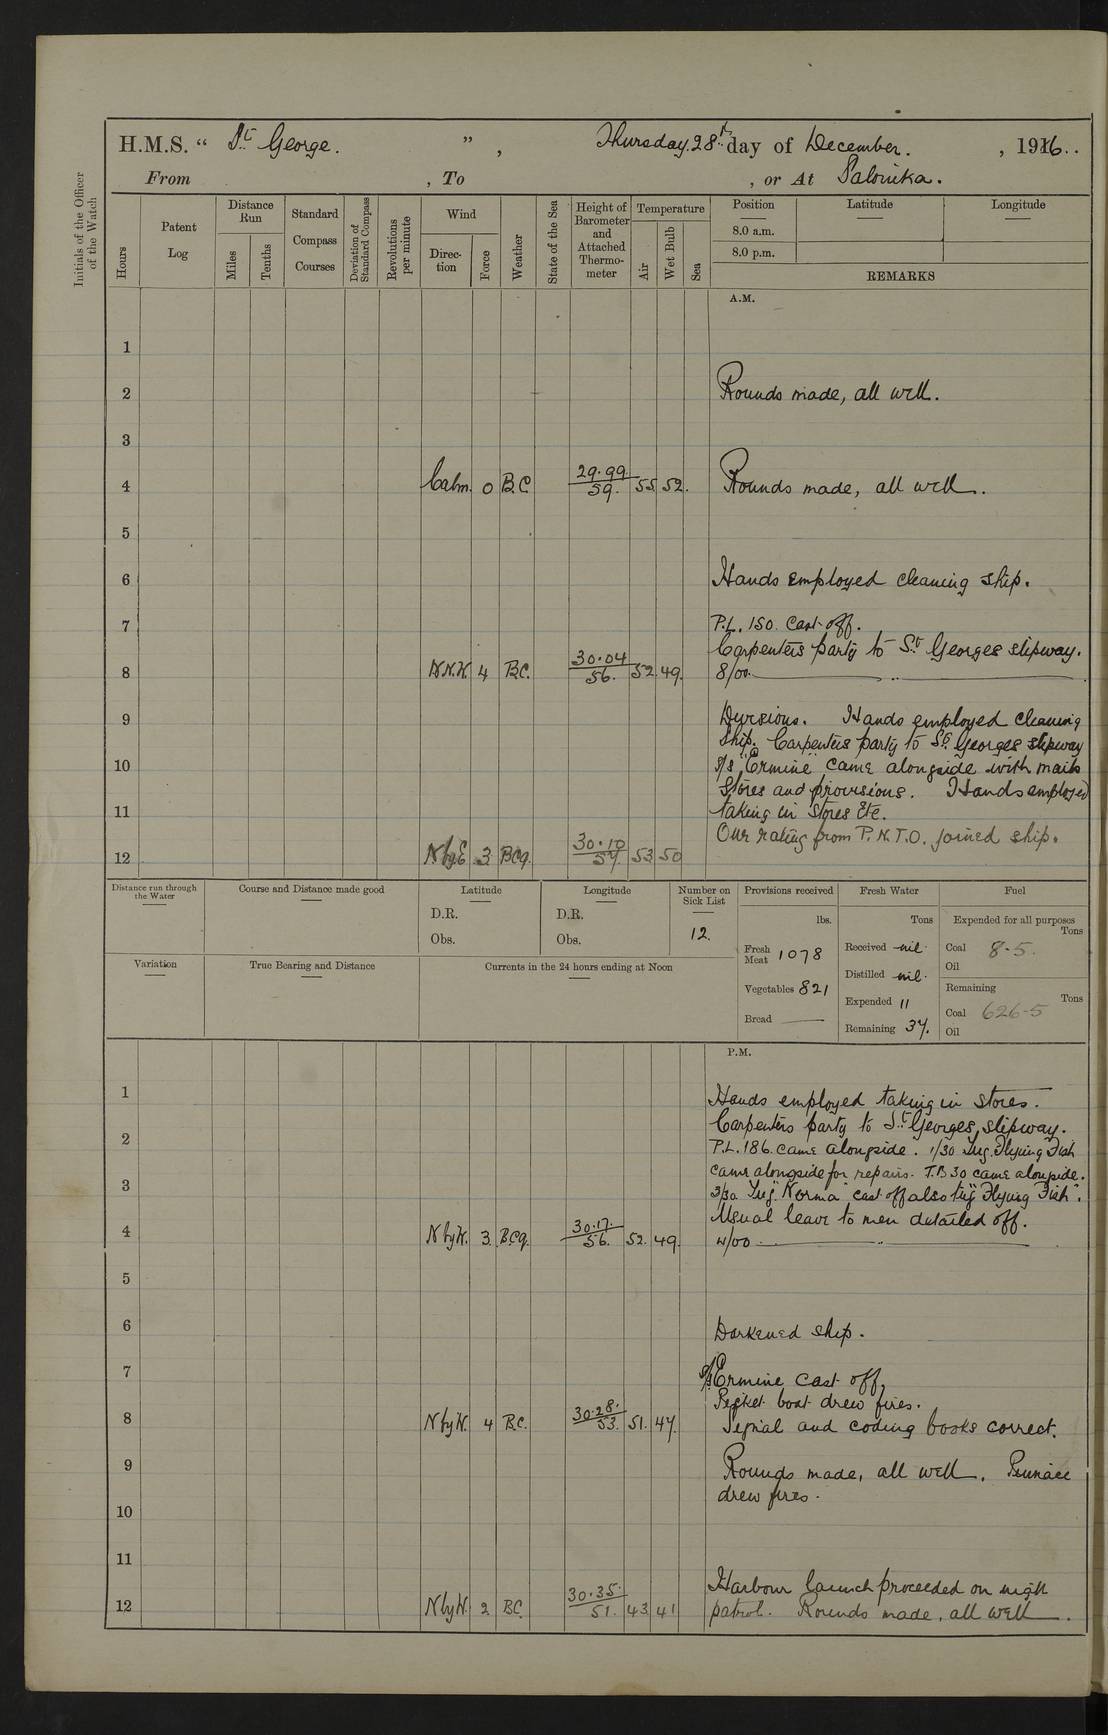 H.M.S. “ St George. ” , Thursday 28th day of December. , 1916.
From , To , or At Salonika.
Initials of the Officer of the Watch
Hours
Patent Log
Distance Run
Miles
Tenths
Standard Compass Courses
Deviation of Standard Compass
Revolutions per minute
Wind
Direction
Force
Weather
State of the Sea
Height of Barometer and Attached Thermometer
Temperature
Air
Wet Bulb
Sea
Position
8.0 a.m.
8.0 p.m.
Latitude
Longitude
REMARKS
A.M.
1
2 Rounds made, all well.
3
4 Calm. 0 B.C. 29.99 59. 55. 52. Rounds made, all well.
5
6 Hands employed cleaning ship.
7 P.L. 150. cast off.
Carpenters party to St Georges slipway.
8 N.N.W. 4 B.C. 30.04 56. 52. 49. 8/00. „
9 Divisions. Hands employed cleaning
ship. Carpenters party to St. Georges slipway
10 s/s "Ermine" came alongside with mails
Stores and provisions. Hands employed
11 taking in Stores Etc.
One rating from P.N.T.O. joined ship.
12 N by E 3 BCq. 30.10 57. 53 50
Distance run through the Water
Course and Distance made good
Latitude
D.R.
Obs.
Longitude
D.R.
Obs.
Number on Sick List
12.
Provisions received
lbs.
Fresh Meat 1078
Vegetables 821
Bread
Fresh Water
Tons
Received nil.
Distilled nil.
Expended 11
Remaining 37.
Fuel
Expended for all purposes
Tons
Coal 8.5.
Oil
Remaining
Tons
Coal 626.5
Oil
Variation
True Bearing and Distance
Currents in the 24 hours ending at Noon
P.M.
1 Hands employed taking in stores.
Carpenters party to St Georges, slipway.
2 P.L. 186. came alongside. 1/30 Tug. Flying Fish
came alongside for repairs. T.B 30 came alongside.
3 3/30 Tug "Norma" cast off also tug "Flying Fish".
Usual leave to men detailed off.
4 N by W. 3. B.Cq. 30.17. 56. 52. 49. 4/00 „
5
6 Darkened ship.
7 s/s Ermine cast off,
Picket boat drew fires.
8 N by W. 4 B.C. 30.28. 53. 51. 47. Signal and coding books correct.
9 Rounds made, all well. Pinnace
drew fires.
10
11
Harbour launch proceeded on night
12 N by W. 2 B.C. 30.35. 51. 43. 41 patrol. Rounds made, all well.